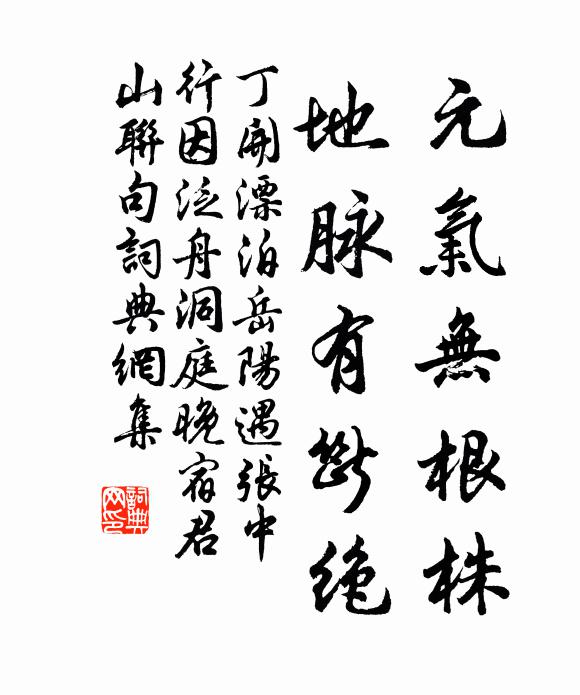 元氣無根株
地脉有斷绝
丁開漂泊岳陽遇張中
行因泛舟洞庭晚宿君
山聯句詞典網集
詞典
网印